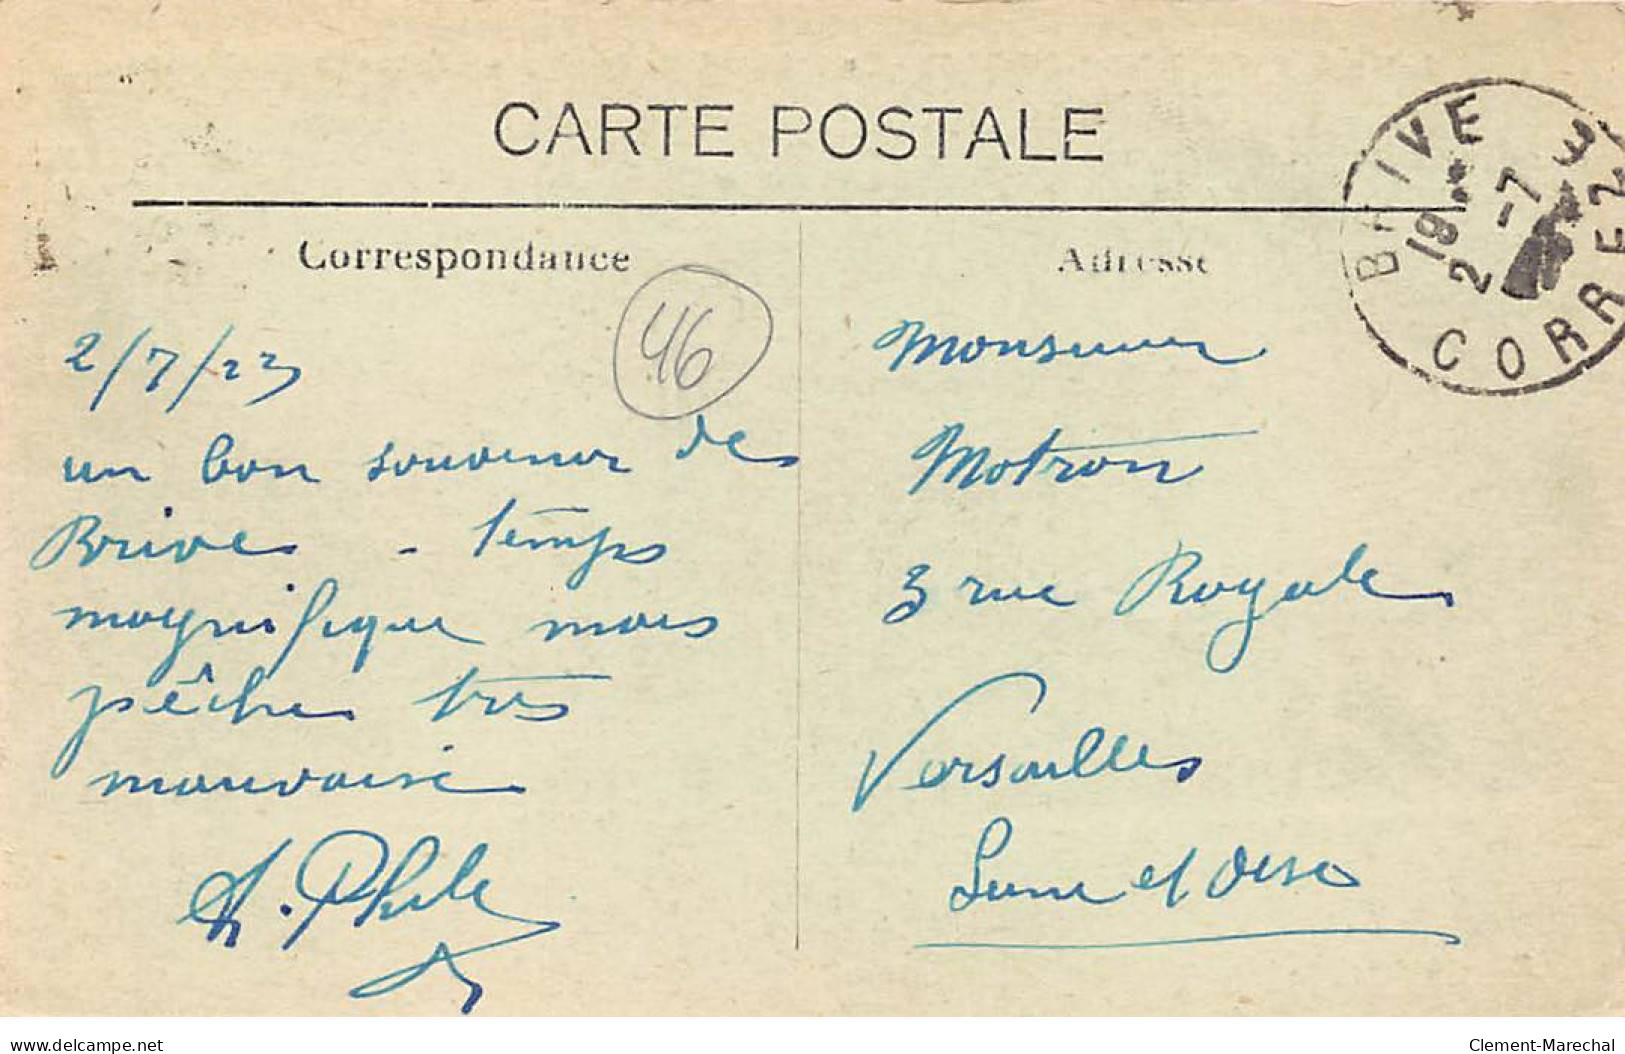 CARTE POSTALE
BRIVE
CORREZ
19**
2 -7
3
Correspondance
Adresse
46
2/7/23
un bon souvenir de
Brive - temps
magnifique mais
pêche très
mauvaise
Monsieur
Motron
3 rue Royale
Versailles
Seine et Oise
www.delcampe.net
Clement-Marechal